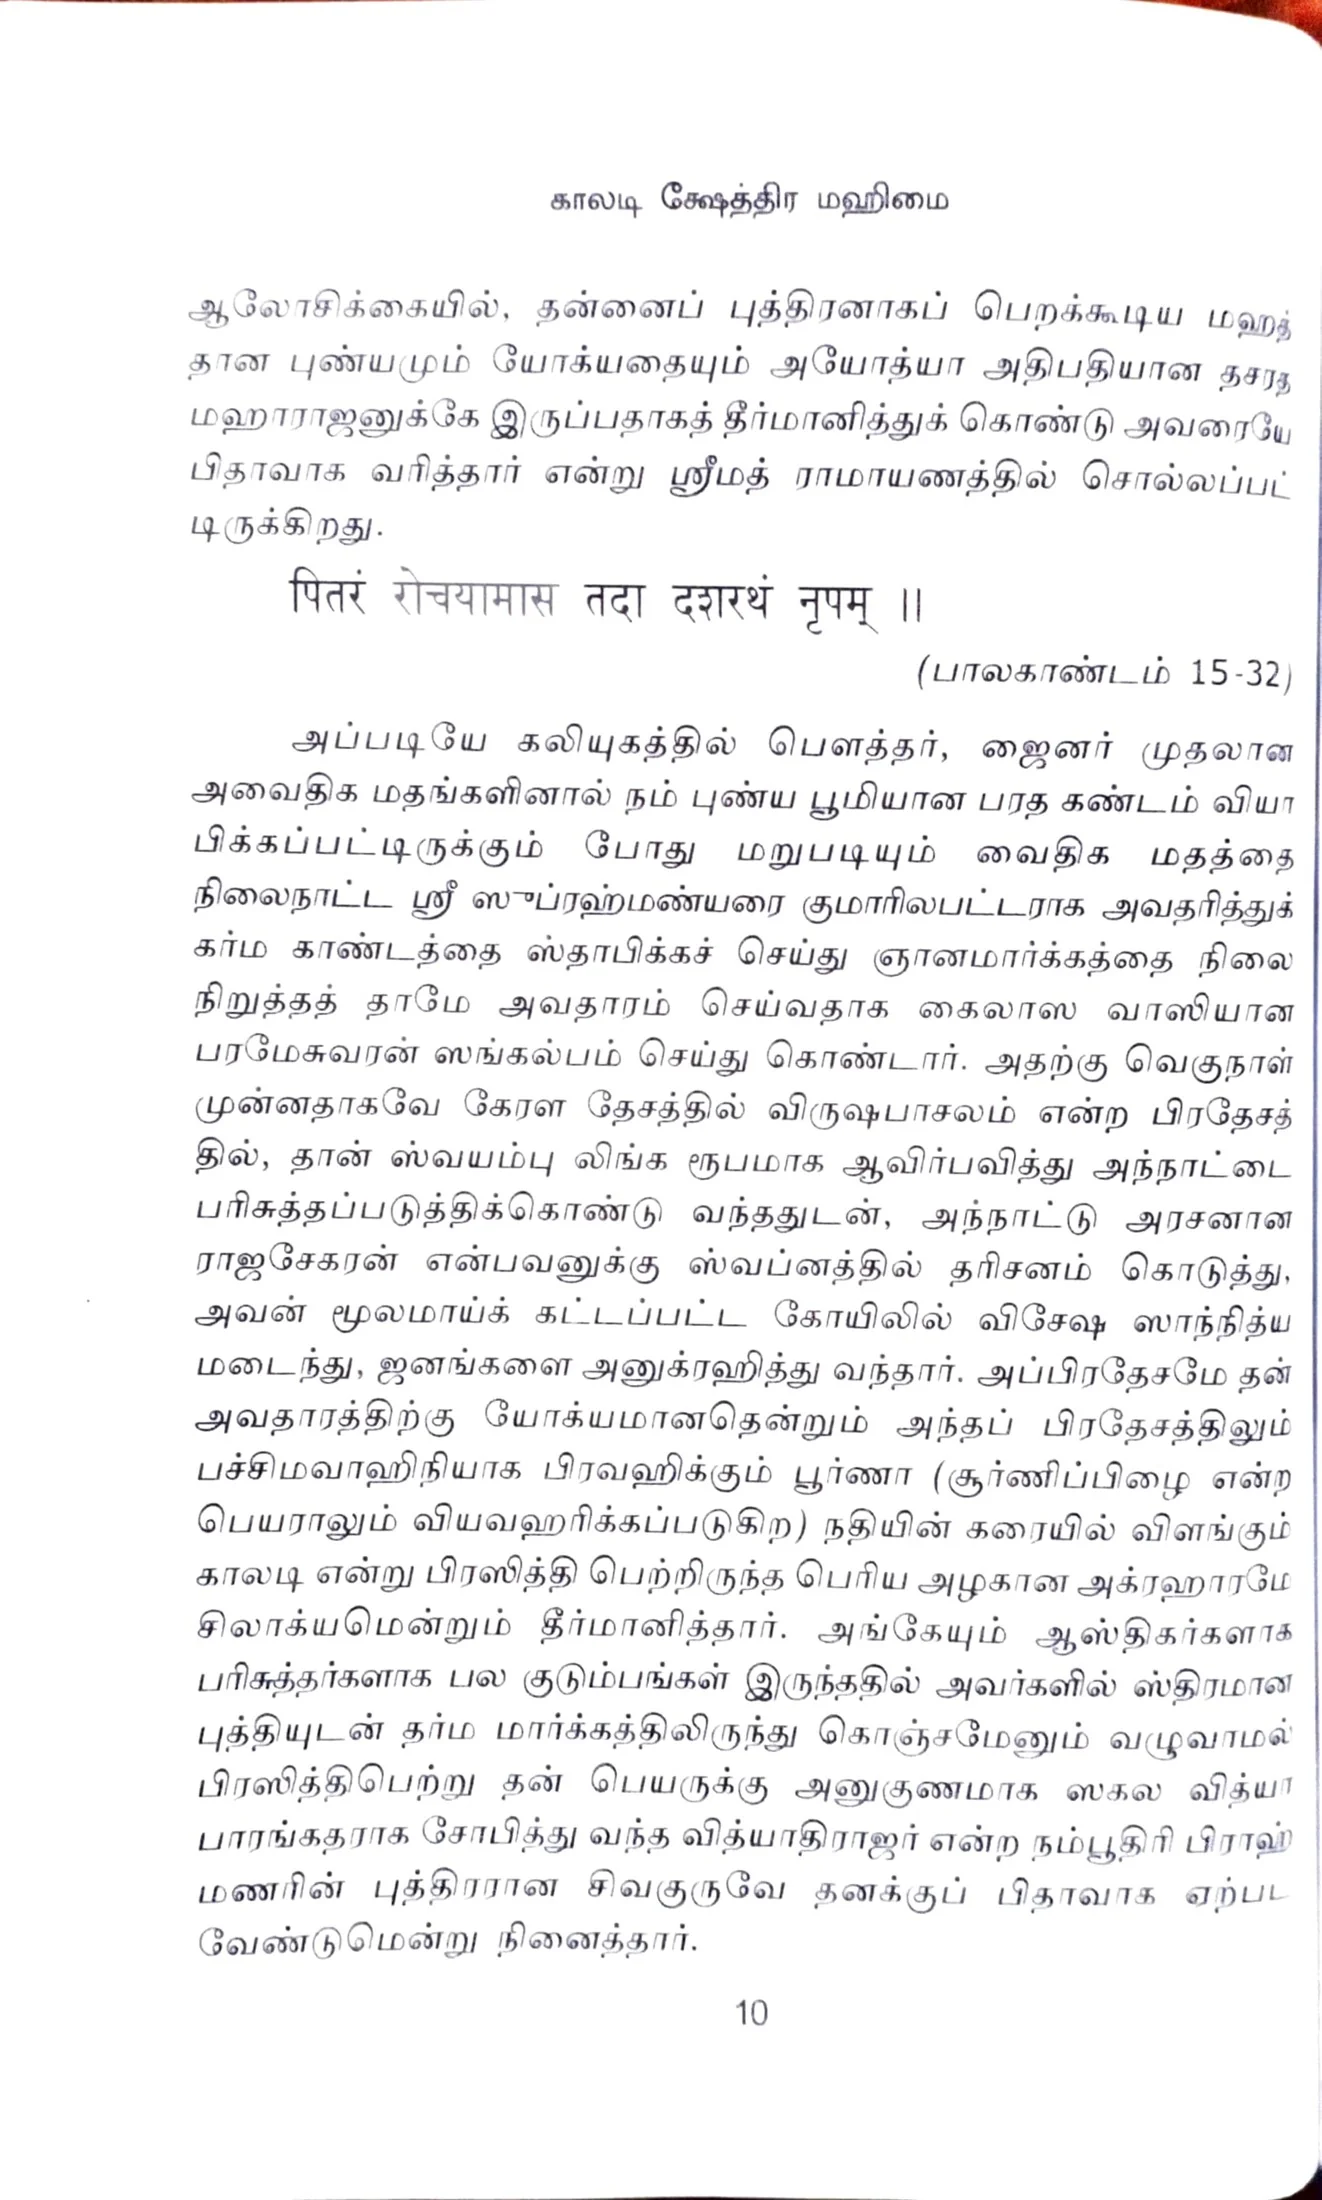 காலடி க்ஷேத்திர மஹிமை
ஆலோசிக்கையில், தன்னைப் புத்திரனாகப் பெறக்கூடிய மஹத்
தான புண்யமும் யோக்யதையும் அயோத்யா அதிபதியான தசரத
மஹாராஜனுக்கே இருப்பதாகத் தீர்மானித்துக் கொண்டு அவரையே
பிதாவாக வரித்தார் என்று ஸ்ரீமத் ராமாயணத்தில் சொல்லப்பட்
டிருக்கிறது.
पितरं रोचयामास तदा दशरथं नृपम् ॥
(பாலகாண்டம் 15-32)
அப்படியே கலியுகத்தில் பௌத்தர், ஜைனர் முதலான
அவைதிக மதங்களினால் நம் புண்ய பூமியான பரத கண்டம் வியா
பிக்கப்பட்டிருக்கும் போது மறுபடியும் வைதிக மதத்தை
நிலைநாட்ட ஸ்ரீ ஸுப்ரஹ்மண்யரை குமாரிலபட்டராக அவதரித்துக்
கர்ம காண்டத்தை ஸ்தாபிக்கச் செய்து ஞானமார்க்கத்தை நிலை
நிறுத்தத் தாமே அவதாரம் செய்வதாக கைலாஸ வாஸியான
பரமேசுவரன் ஸங்கல்பம் செய்து கொண்டார். அதற்கு வெகுநாள்
முன்னதாகவே கேரள தேசத்தில் விருஷபாசலம் என்ற பிரதேசத்
தில், தான் ஸ்வயம்பு லிங்க ரூபமாக ஆவிர்பவித்து அந்நாட்டை
பரிசுத்தப்படுத்திக்கொண்டு வந்ததுடன், அந்நாட்டு அரசனான
ராஜசேகரன் என்பவனுக்கு ஸ்வப்னத்தில் தரிசனம் கொடுத்து,
அவன் மூலமாய்க் கட்டப்பட்ட கோயிலில் விசேஷ ஸாந்நித்ய
மடைந்து, ஜனங்களை அனுக்ரஹித்து வந்தார். அப்பிரதேசமே தன்
அவதாரத்திற்கு யோக்யமானதென்றும் அந்தப் பிரதேசத்திலும்
பச்சிமவாஹிநியாக பிரவஹிக்கும் பூர்ணா (சூர்ணிப்பிழை என்ற
பெயராலும் வியவஹரிக்கப்படுகிற) நதியின் கரையில் விளங்கும்
காலடி என்று பிரஸித்தி பெற்றிருந்த பெரிய அழகான அக்ரஹாரமே
சிலாக்யமென்றும் தீர்மானித்தார். அங்கேயும் ஆஸ்திகர்களாக
பரிசுத்தர்களாக பல குடும்பங்கள் இருந்ததில் அவர்களில் ஸ்திரமான
புத்தியுடன் தர்ம மார்க்கத்திலிருந்து கொஞ்சமேனும் வழுவாமல்
பிரஸித்திபெற்று தன் பெயருக்கு அனுகுணமாக ஸகல வித்யா
பாரங்கதராக சோபித்து வந்த வித்யாதிராஜர் என்ற நம்பூதிரி பிராஹ்
மணரின் புத்திரரான சிவகுருவே தனக்குப் பிதாவாக ஏற்பட
வேண்டுமென்று நினைத்தார்.
10